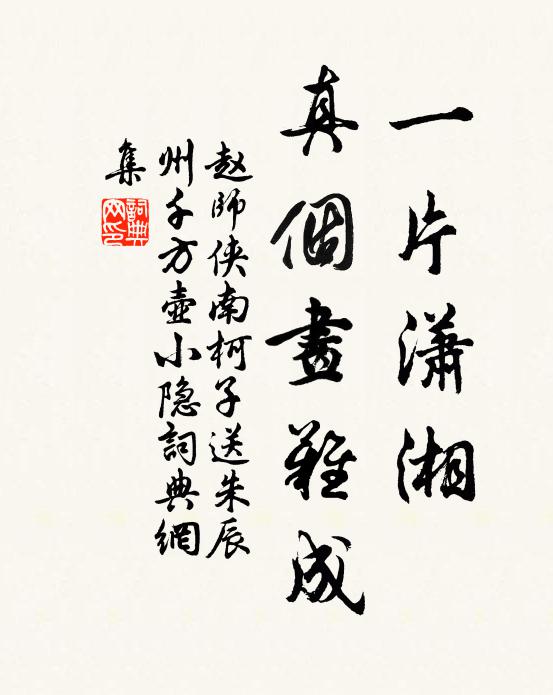 一片瀟湘
真個畫難成
赵師俠南柯子送朱辰
州千方壺小隐詞典網
集
詞典
网印